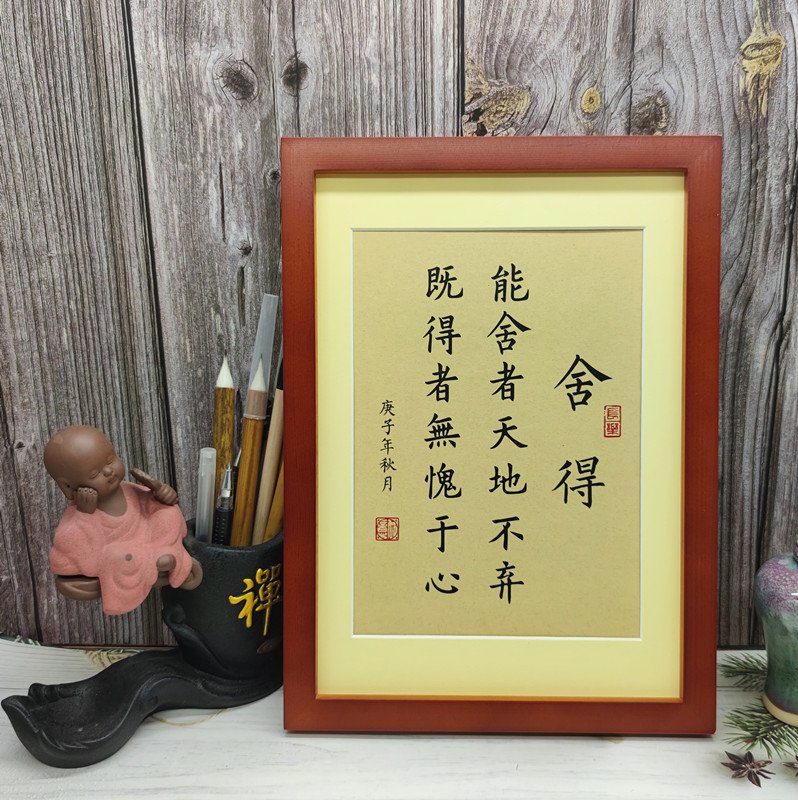 舍得
能舍者天地不弃
既得者無愧于心
庚子年秋月
禪